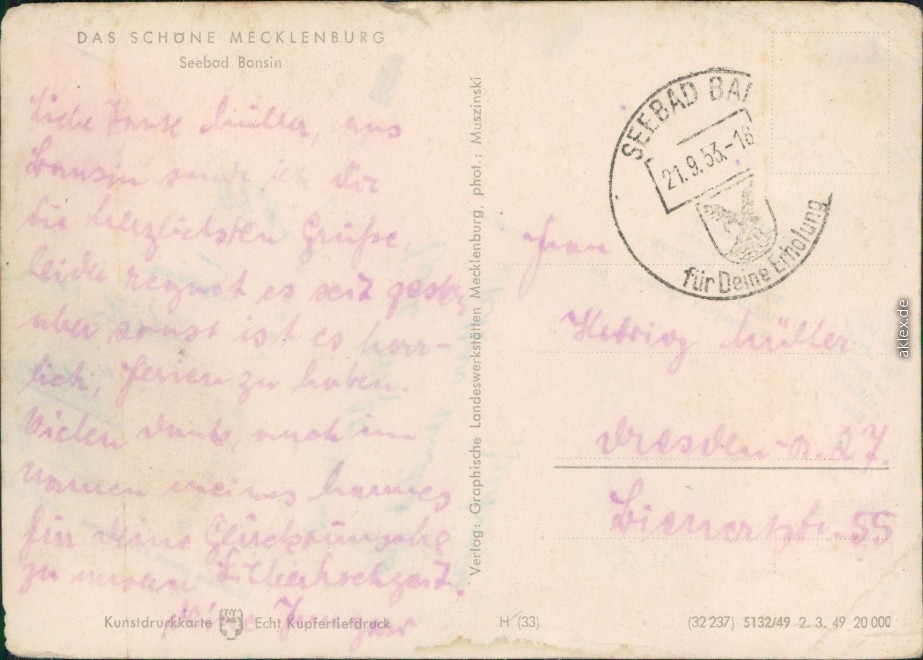 DAS SCHÖNE MECKLENBURG
Seebad Bansin
Liebe Tante Müller, aus
Bansin sende ich Dir
die herzlichsten Grüße,
leider regnet es seit gestern
aber sonst ist es herr-
lich, Ferien zu haben.
Vielen Dank, auch im
Namen meines Mannes
für Deine Glückwünsche
zu unserer Silberhochzeit.
Kunstdruckkarte Echt Kupfertiefdruck
Verlag: Graphische Landeswerkstätten Mecklenburg, phot.: Muszinski
SEEBAD BAN
21.9.53.-18
für Deine Erholung
Frau
Hedwig Müller
Dresden-A. 27.
Bienertstr. 55
H (33)
(32 237) 5132/49 2. 3. 49 20 000
aklex.de